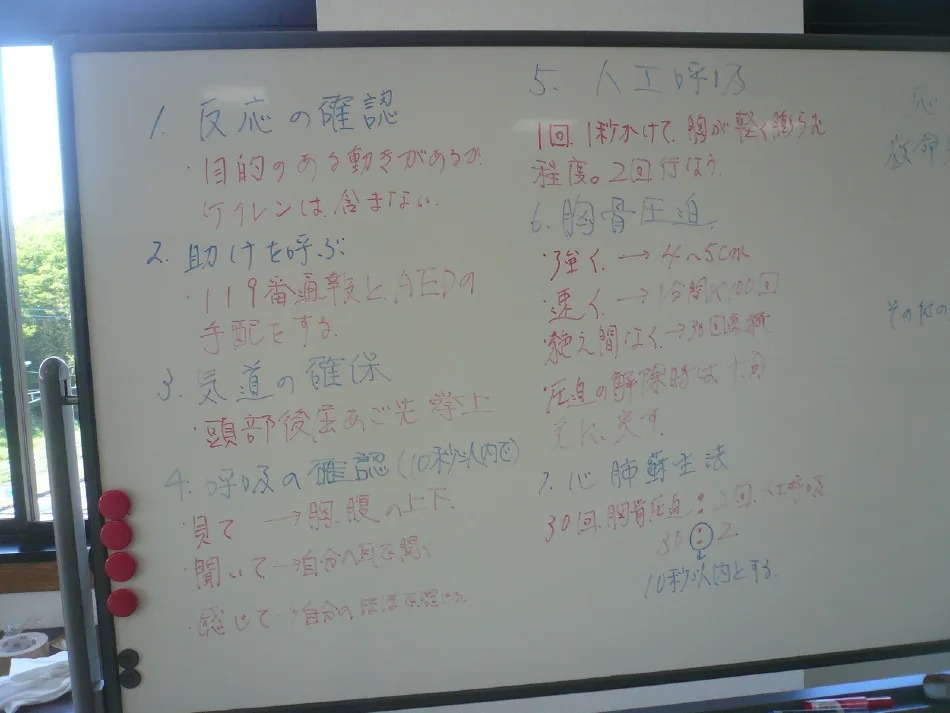 1. 反応の確認
・目的のある動きがあるか
ケイレンは含まない.
2. 助けを呼ぶ
・119番通報とAEDの
手配をする.
3. 気道の確保
・頭部後屈あご先挙上
4. 呼吸の確認(10秒以内で)
・見て → 胸、腹の上下.
・聞いて→自分の耳で聞く
・感じて→自分のほほで感じる.
5. 人工呼吸
1回. 1秒かけて. 胸が軽く膨らむ
程度。2回行なう.
6. 胸骨圧迫.
・強く. → 4〜5cm
・速く. →1分間に100回
・絶え間なく→30回連続
・圧迫の解除時は
に戻す.
7. 心肺蘇生法
30回.胸骨圧迫:2回.人工呼吸
30:2
10秒以内とする.
応
救命
その他の